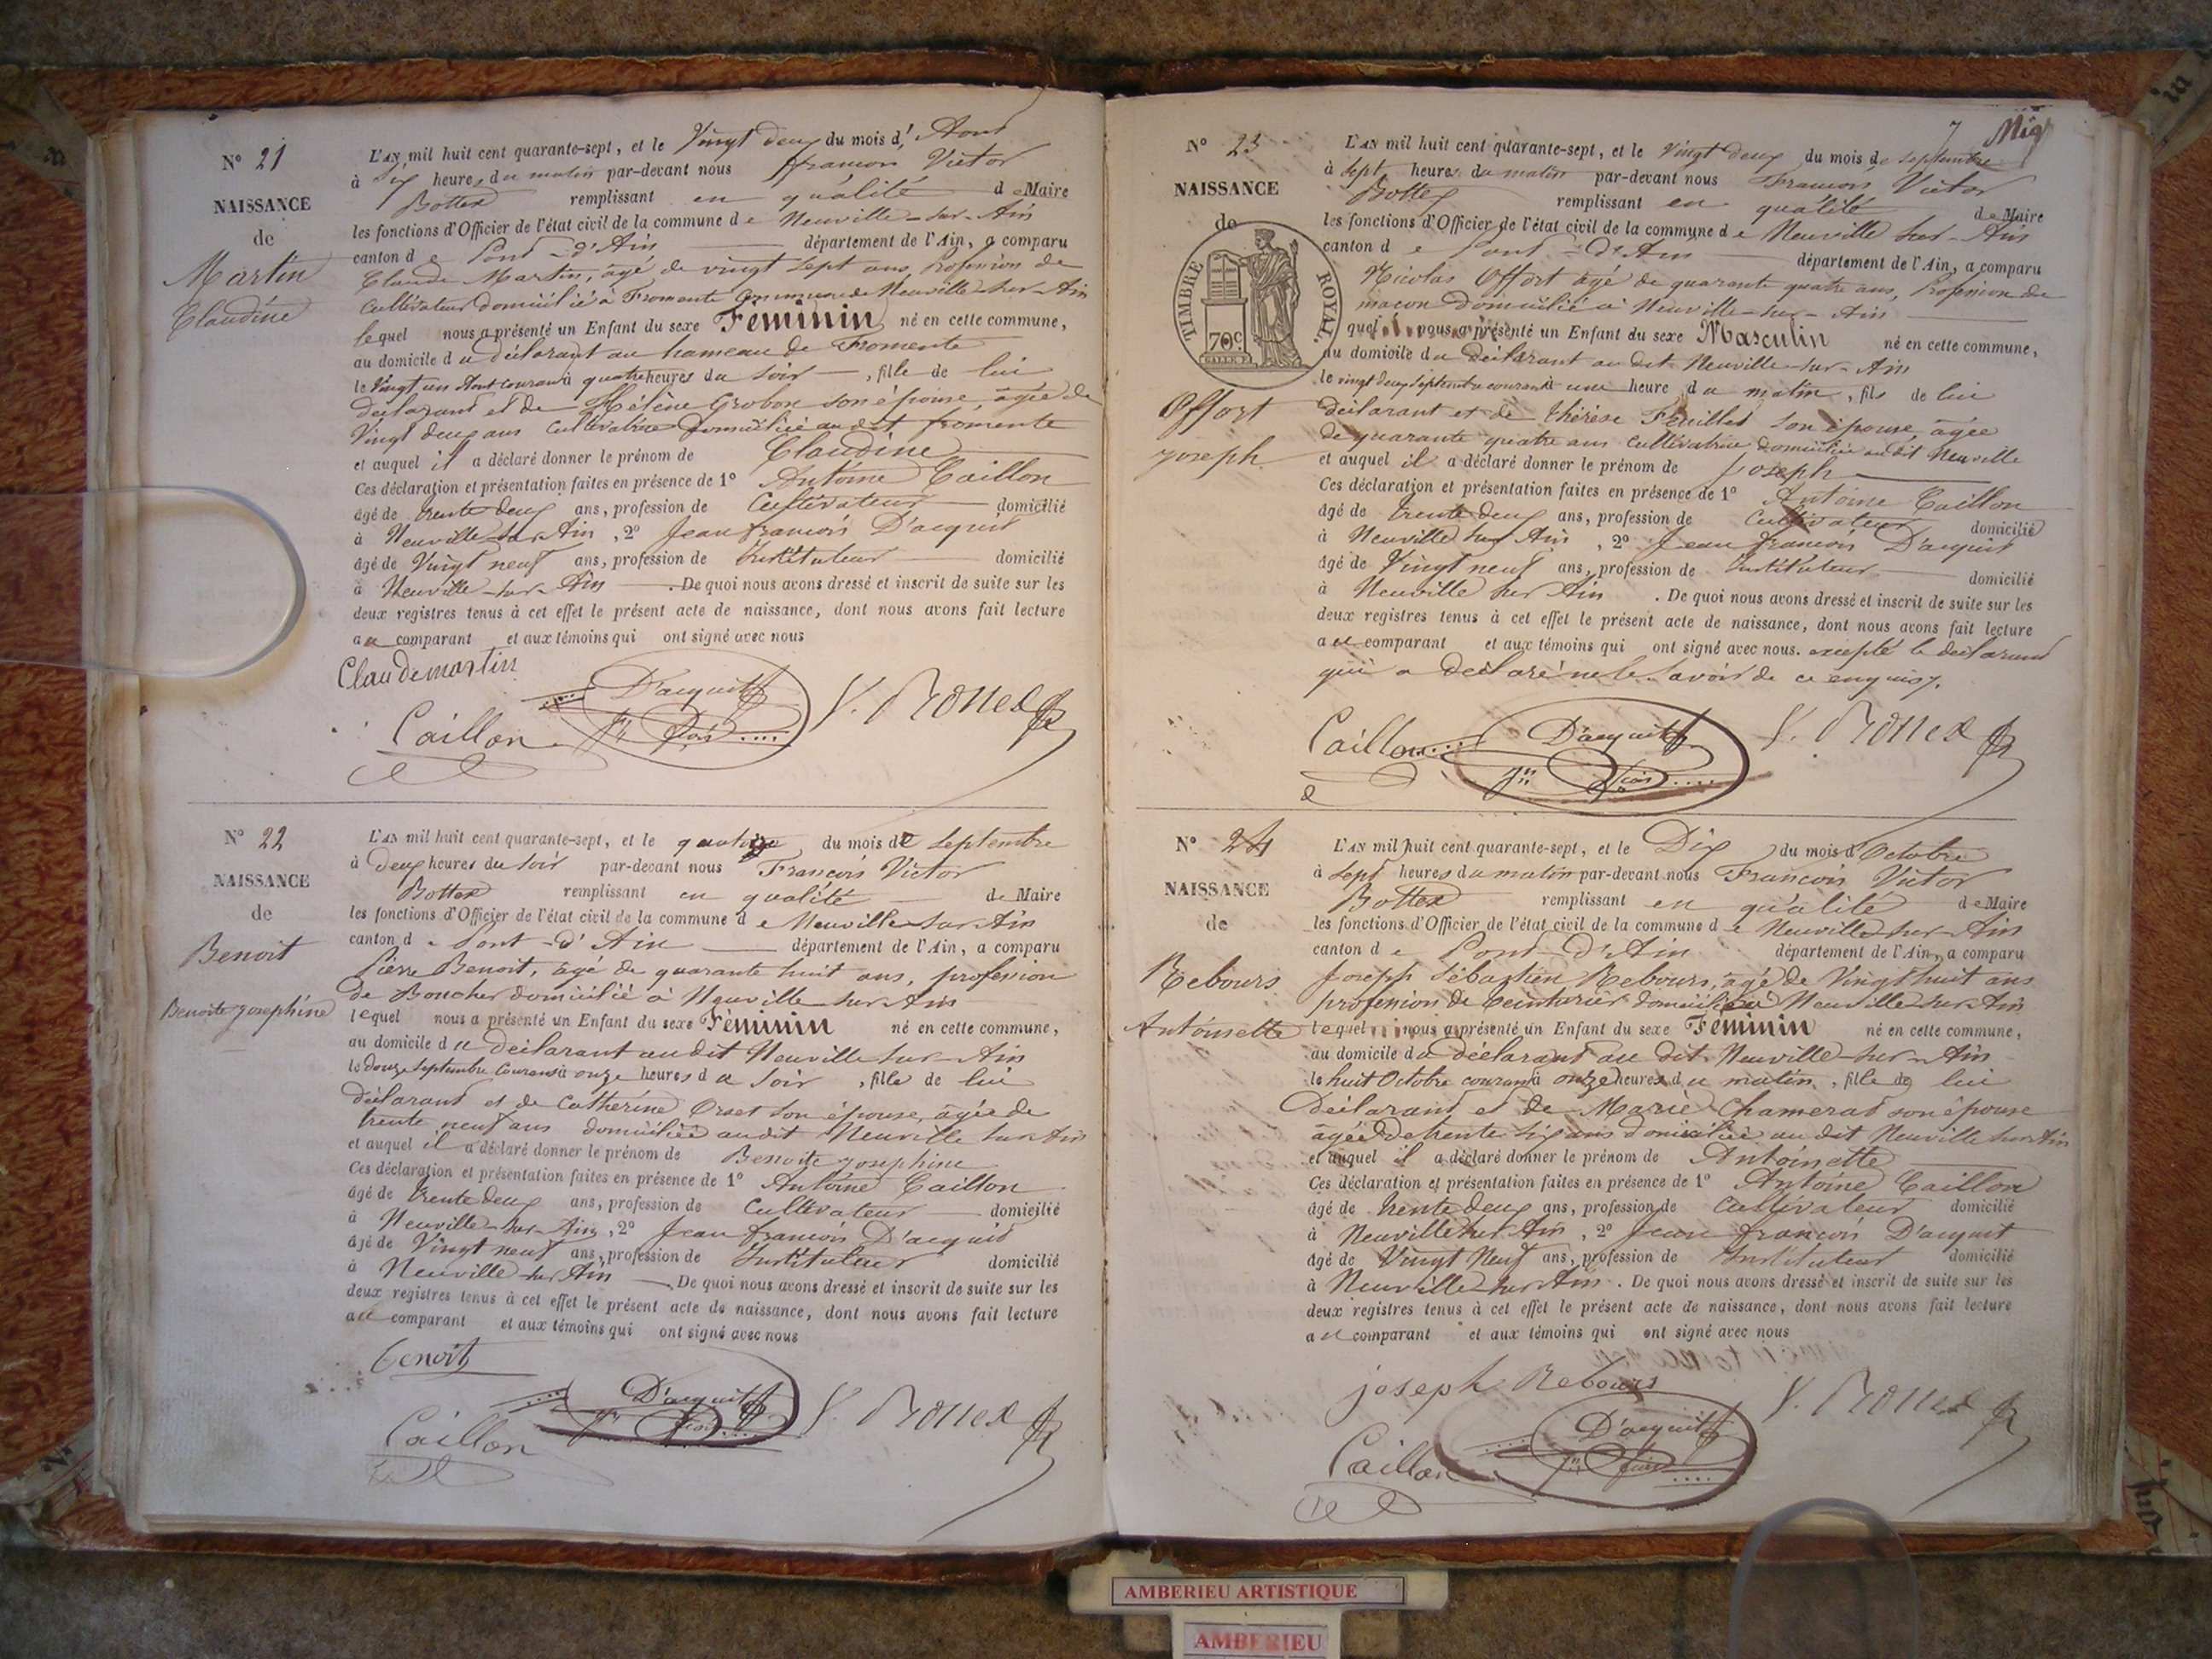 N° 21
NAISSANCE
de
Martin
Claudine
L'AN mil huit cent quarante-sept, et le Vingt deux du mois d' Aout
à Six heures du matin par-devant nous françois Victor
Bottex remplissant en qualité de Maire
les fonctions d'Officier de l'état civil de la commune de Neuville-sur-Ain
canton de Pont-d'Ain département de l'Ain, a comparu
Claude Martin, âgé de vingt sept ans, profession de
Cultivateur domicilié à Fromente Commune de Neuville-sur-Ain
lequel nous a présenté un Enfant du sexe Féminin né en cette commune,
au domicile du déclarant au hameau de Fromente
le Vingt un Aout courant à quatre heures du Soir, fille de lui
déclarant et de Hélène Grobon son épouse, âgée de
Vingt deux ans Cultivatrice domiciliée audit fromente
et auquel il a déclaré donner le prénom de Claudine
Ces déclaration et présentation faites en présence de 1° Antoine Caillon
âgé de trente deux ans, profession de Cultivateur domicilié
à Neuville-sur-Ain, 2° Jean françois D'acquit
âgé de Vingt neuf ans, profession de Instituteur domicilié
à Neuville-sur-Ain. De quoi nous avons dressé et inscrit de suite sur les
deux registres tenus à cet effet le présent acte de naissance, dont nous avons fait lecture
au comparant et aux témoins qui ont signé avec nous
Claude martin
Caillon D'acquit V. Bottex
N° 22
NAISSANCE
de
Benoit
Benoite josephine
L'AN mil huit cent quarante-sept, et le quatorze du mois de Septembre
à deux heures du Soir par-devant nous François Victor
Bottex remplissant en qualité de Maire
les fonctions d'Officier de l'état civil de la commune de Neuville-sur-Ain
canton de Pont-d'Ain département de l'Ain, a comparu
Pierre Benoit, âgé de quarante huit ans, profession
de Boucher domicilié à Neuville-sur-Ain
lequel nous a présenté un Enfant du sexe Féminin né en cette commune,
au domicile du déclarant audit Neuville-sur-Ain
le douze Septembre Courant à onze heures du Soir, fille de lui
déclarant et de Catherine Orset son épouse, âgée de
trente neuf ans domiciliée audit Neuville sur Ain
et auquel il a déclaré donner le prénom de Benoite josephine
Ces déclaration et présentation faites en présence de 1° Antoine Caillon
âgé de trente deux ans, profession de Cultivateur domicilié
à Neuville-sur-Ain, 2° Jean françois D'acquit
âgé de Vingt neuf ans, profession de Instituteur domicilié
à Neuville-sur-Ain. De quoi nous avons dressé et inscrit de suite sur les
deux registres tenus à cet effet le présent acte de naissance, dont nous avons fait lecture
au comparant et aux témoins qui ont signé avec nous
benoit
Caillon D'acquit V. Bottex
7
N° 23
NAISSANCE
de
TIMBRE ROYAL.
70c
Offort
joseph
L'AN mil huit cent quarante-sept, et le Vingt deux du mois de Septembre
à Sept heures du matin par-devant nous François Victor
Bottex remplissant en qualité de Maire
les fonctions d'Officier de l'état civil de la commune de Neuville sur-Ain
canton de Pont-d'Ain département de l'Ain, a comparu
Nicolas Offort âgé de quarante quatre ans, Profession de
maçon domicilié à Neuville-sur-Ain
quel nous a présenté un Enfant du sexe Masculin né en cette commune,
au domicile du déclarant au dit Neuville-sur-Ain
le vingt deux Septembre courant à une heure du matin, fils de lui
déclarant et de thérèse Feuillet son épouse, âgée
de quarante quatre ans Cultivatrice domiciliée au dit Neuville
et auquel il a déclaré donner le prénom de joseph
Ces déclaration et présentation faites en présence de 1° Antoine Caillon
âgé de trente deux ans, profession de Cultivateur domicilié
à Neuville sur Ain, 2° Jean françois D'acquit
âgé de Vingt neuf ans, profession de Instituteur domicilié
à Neuville sur Ain. De quoi nous avons dressé et inscrit de suite sur les
deux registres tenus à cet effet le présent acte de naissance, dont nous avons fait lecture
au comparant et aux témoins qui ont signé avec nous. excepté le déclarant
qui a déclaré ne le savoir de ce enquis.
Caillon D'acquit V. Bottex
N° 24
NAISSANCE
de
Rebours
Antoinette
L'AN mil huit cent quarante-sept, et le Dix du mois d'Octobre
à Sept heures du matin par-devant nous François Victor
Bottex remplissant en qualité de Maire
les fonctions d'Officier de l'état civil de la commune de Neuville-sur-Ain
canton de Pont-d'Ain département de l'Ain, a comparu
Joseph Sébastien Rebours, âgé de Vingt huit ans
profession de teinturier domicilié à Neuville sur Ain
lequel nous a présenté un Enfant du sexe Féminin né en cette commune,
au domicile du déclarant au dit Neuville-sur-Ain
le huit Octobre courant à onze heures du matin, fille de lui
déclarant et de Marie Chamerat son épouse
âgée de trente six ans domiciliée au dit Neuville sur Ain
et auquel il a déclaré donner le prénom de Antoinette
Ces déclaration et présentation faites en présence de 1° Antoine Caillon
âgé de trente deux ans, profession de Cultivateur domicilié
à Neuville sur Ain, 2° Jean françois D'acquit
âgé de Vingt Neuf ans, profession de Instituteur domicilié
à Neuville-sur-Ain. De quoi nous avons dressé et inscrit de suite sur les
deux registres tenus à cet effet le présent acte de naissance, dont nous avons fait lecture
au comparant et aux témoins qui ont signé avec nous
joseph Rebours
Caillon D'acquit V. Bottex
AMBERIEU ARTISTIQUE
AMBERIEU